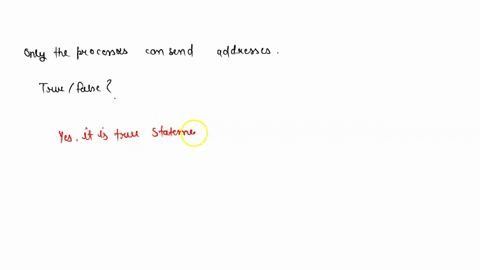 Only the processors can send addresses.
True/False?
Yes, it is true Stateme